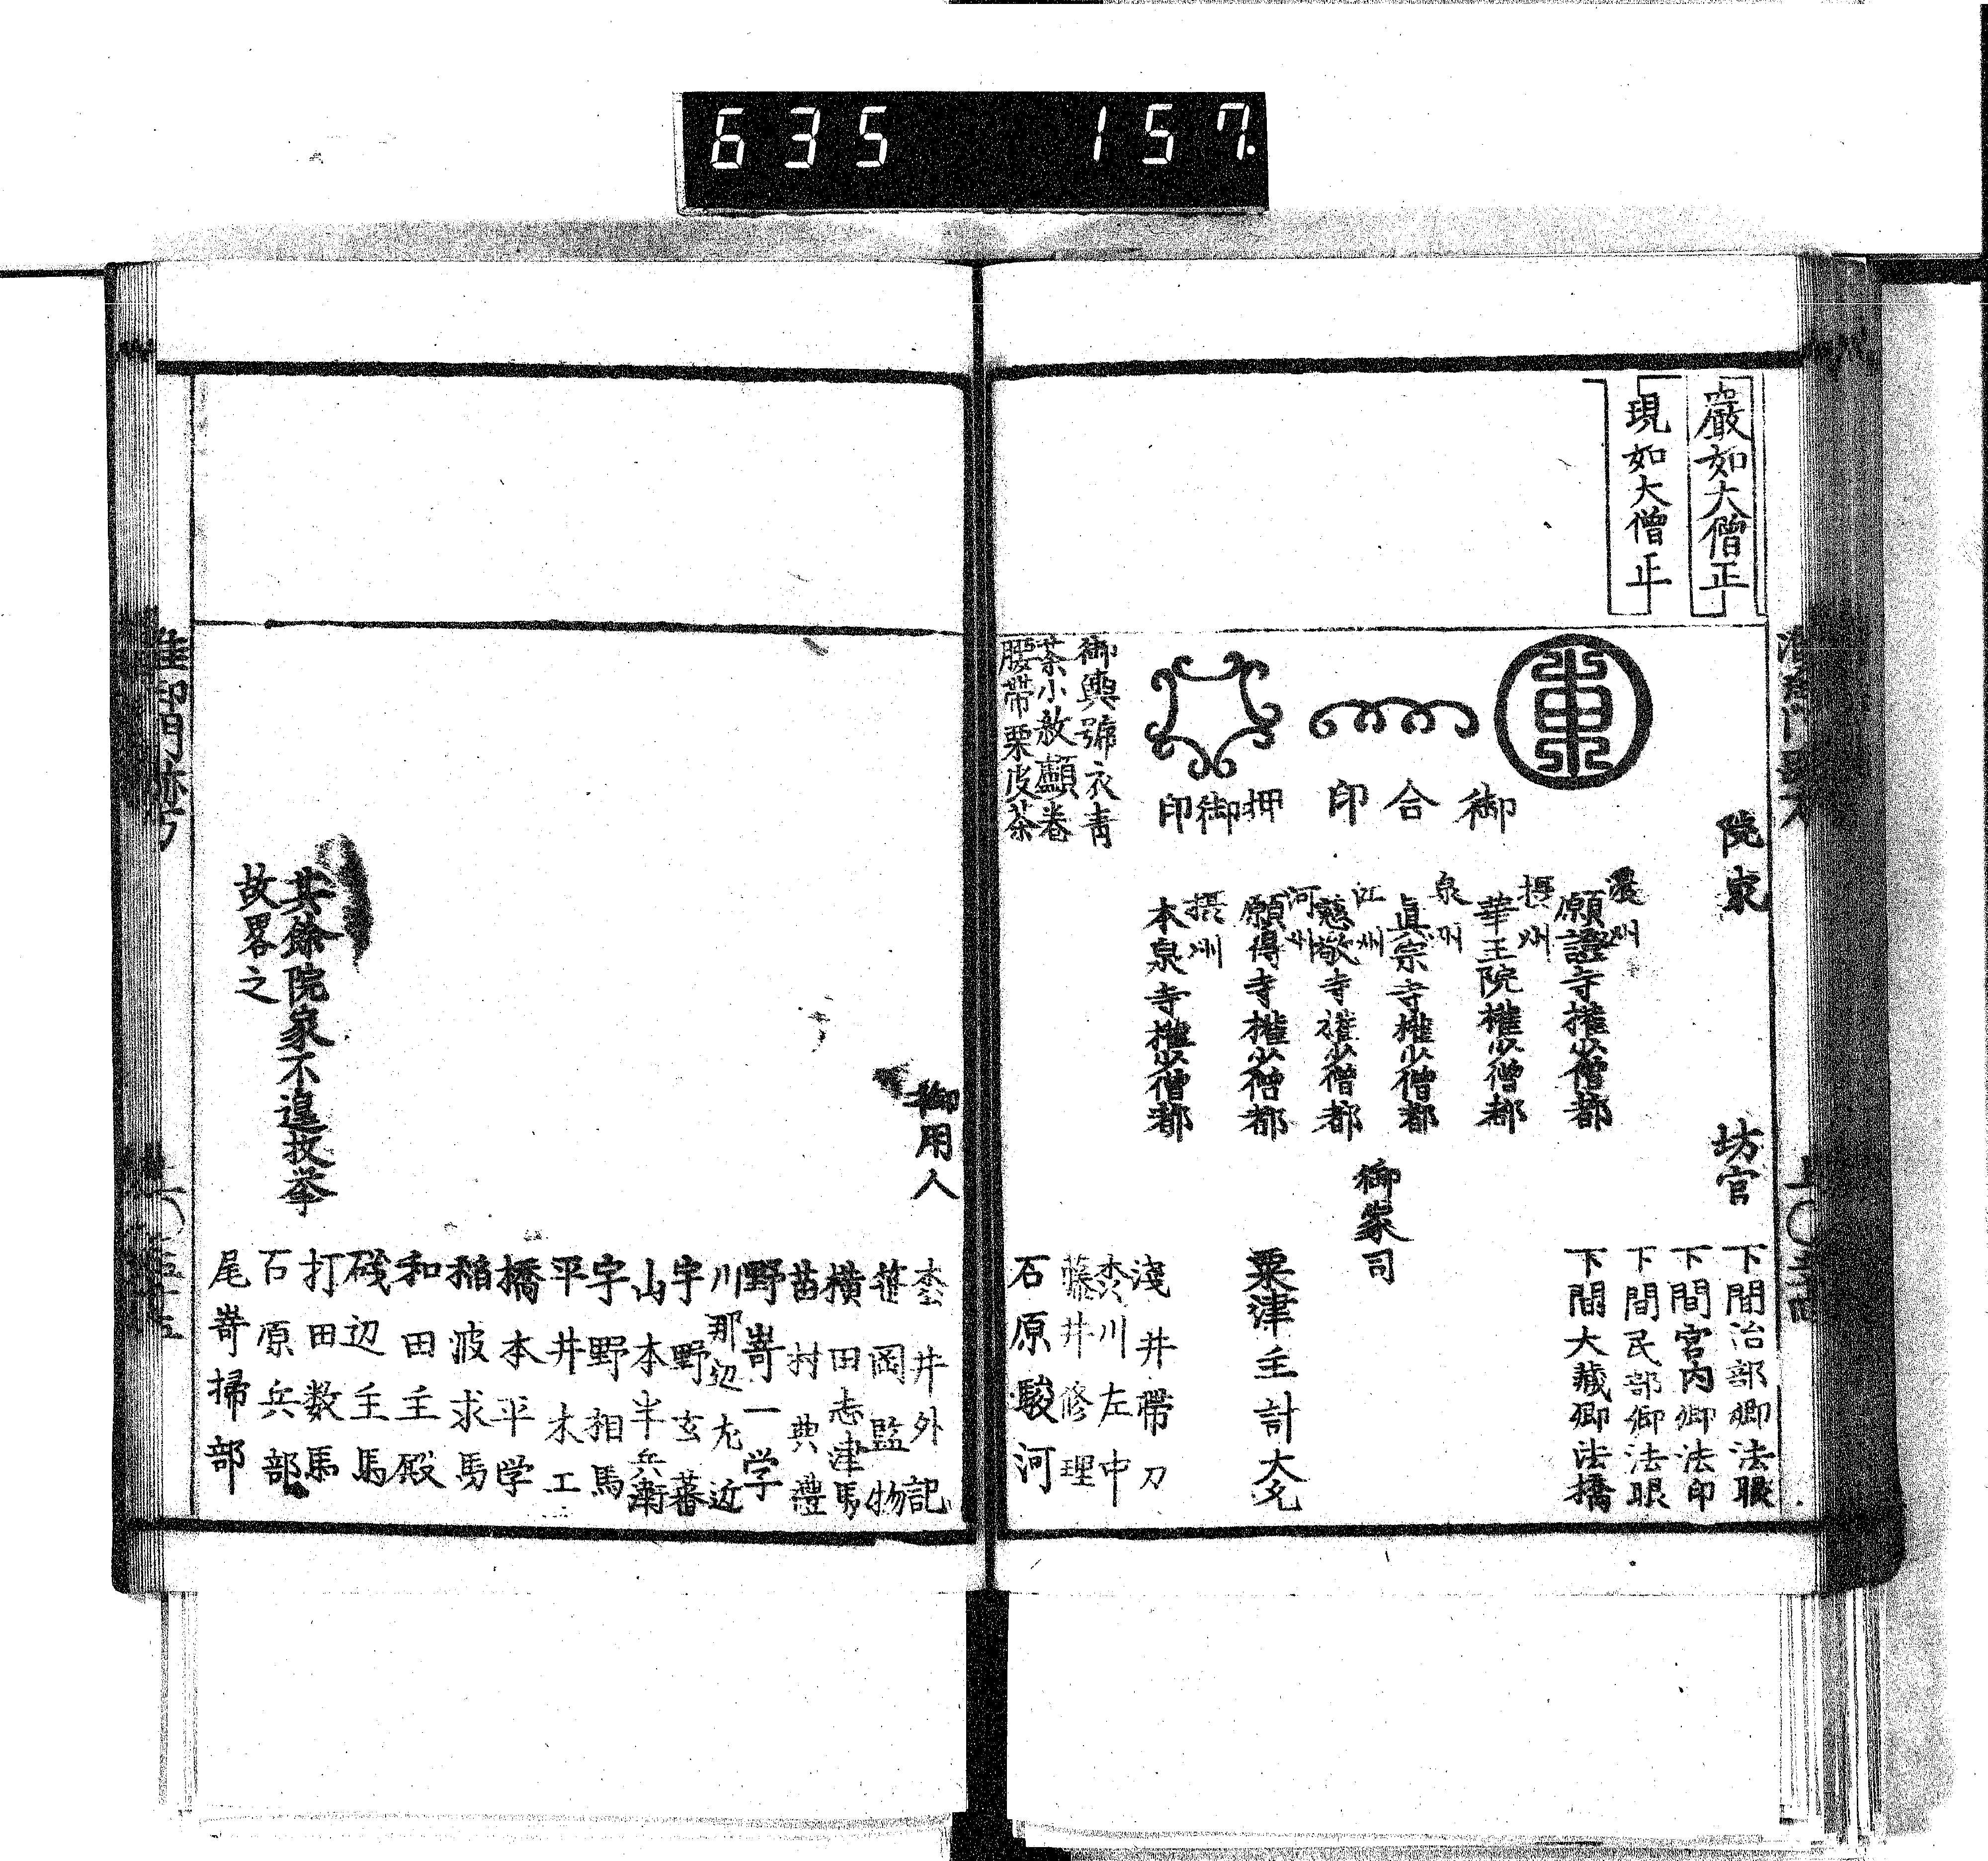 635 157.
嚴如大僧正
現如大僧正
御合印
押御印
御輿舁衣青
茶小赦顱巻
腰帯栗皮茶
院家
濃州
願證寺権少僧都
摂州
華王院権少僧都
泉州
眞宗寺権少僧都
江州
慈敬寺権少僧都
河州
願得寺権少僧都
摂州
本泉寺権少僧都
坊官
下間治部卿法眼
下間宮内卿法印
下間民部卿法眼
下間大藏卿法橋
御家司
粟津主計大允
淺井帯刀
粦川左中
藤井修理
石原駿河
御用人
枩井外記
笹岡監物
横田志津馬
苗村典禮
野嵜一学
川那辺左近
宇野玄蕃
山本半兵衛
宇野相馬
平井木工
橋本平学
稲波求馬
和田主殿
磯辺主馬
打田数馬
石原兵部
尾嵜掃部
其餘院家不遑枚挙
故畧之